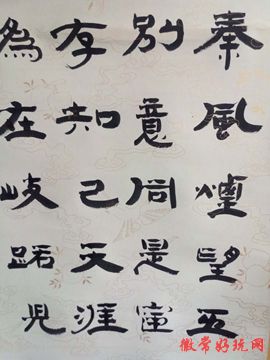 秦風煙望五
別意同是宦
存知己天涯
為在岐路兒
徽常好玩网